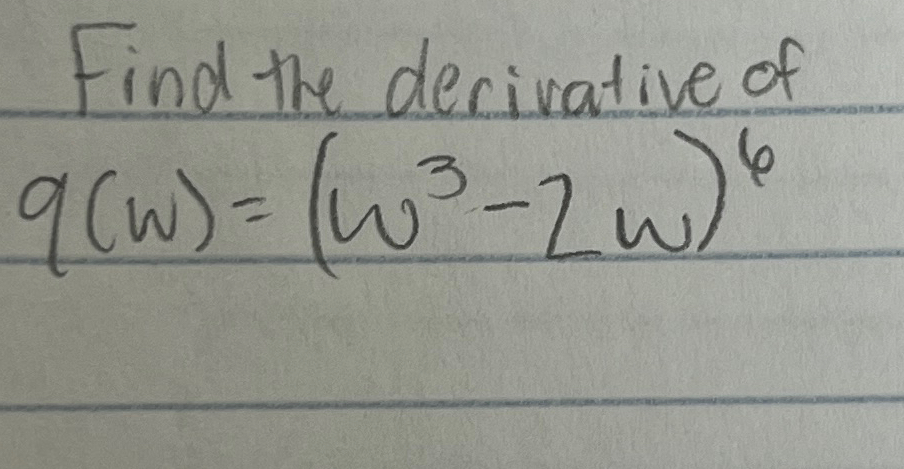 Find the derivative of
q(w) = (w³ - 2w)⁶